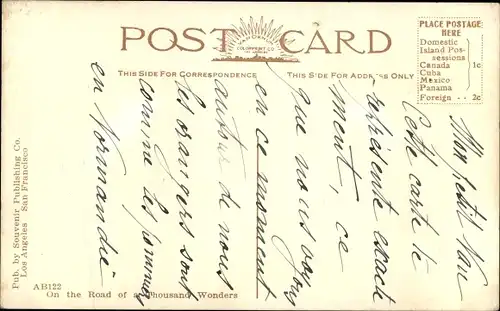 POST CARD
THIS SIDE FOR CORRESPONDENCE
THIS SIDE FOR ADDRESS ONLY
PLACE POSTAGE
HERE
Domestic
Island Pos-
sessions
Canada 1c
Cuba
Mexico
Panama
Foreign .. 2c
Mon petit
Cette carte te
représente exacte
ment, ce
que nous voyons
en ce moment
autour de nous
les orangers sont
comme les pommiers
en Normandie
Pub. by Souvenir Publishing Co.
Los Angeles San Francisco
AB122
On the Road of a Thousand Wonders